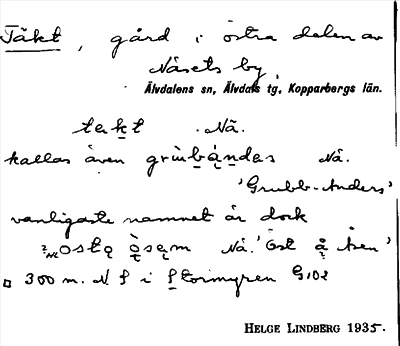 Täkt, gård i östra delen av
Näsets by,
Älvdalens sn, Älvdals tg, Kopparbergs län.
tekt . Nä.
kallas även grubandes Nä.
'Grubb-Anders'
vanligaste namnet är dock
Nä. 'Öst å Åsen'
300 m. N S i Stormyren G102
HELGE LINDBERG 1935.